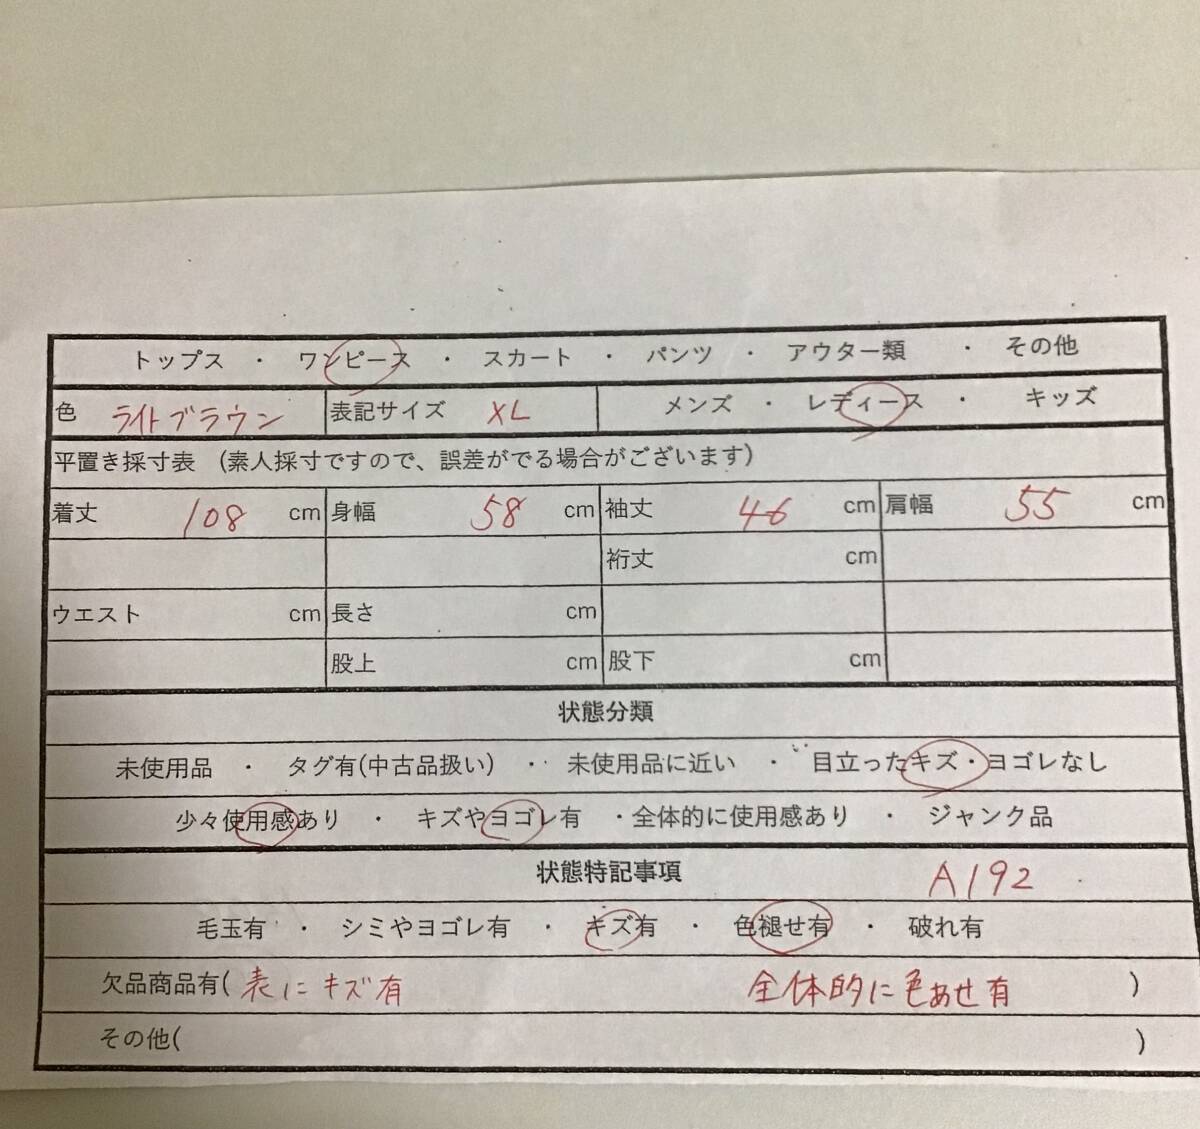 トップス ・ ワンピース ・ スカート ・ パンツ ・ アウター類 ・ その他
色 ライトブラウン 表記サイズ XL メンズ ・ レディース ・ キッズ
平置き採寸表 (素人採寸ですので、誤差がでる場合がございます)
着丈 108 cm 身幅 58 cm 袖丈 46 cm 肩幅 55 cm
裄丈 cm
ウエスト cm 長さ cm
股上 cm 股下 cm
状態分類
未使用品 ・ タグ有(中古品扱い) ・ 未使用品に近い ・ 目立ったキズ・ヨゴレなし
少々使用感あり ・ キズやヨゴレ有 ・全体的に使用感あり ・ ジャンク品
状態特記事項 A192
毛玉有 ・ シミやヨゴレ有 ・ キズ有 ・ 色褪せ有 ・ 破れ有
欠品商品有( 表にキズ有 全体的に色あせ有 )
その他( )